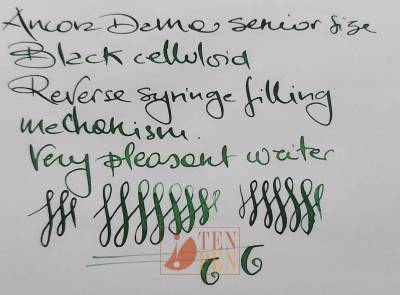 Ancora Demo senior size
Black celluloid
Reverse syringe filling
mechanism.
Very pleasant writer
TEN
PEN